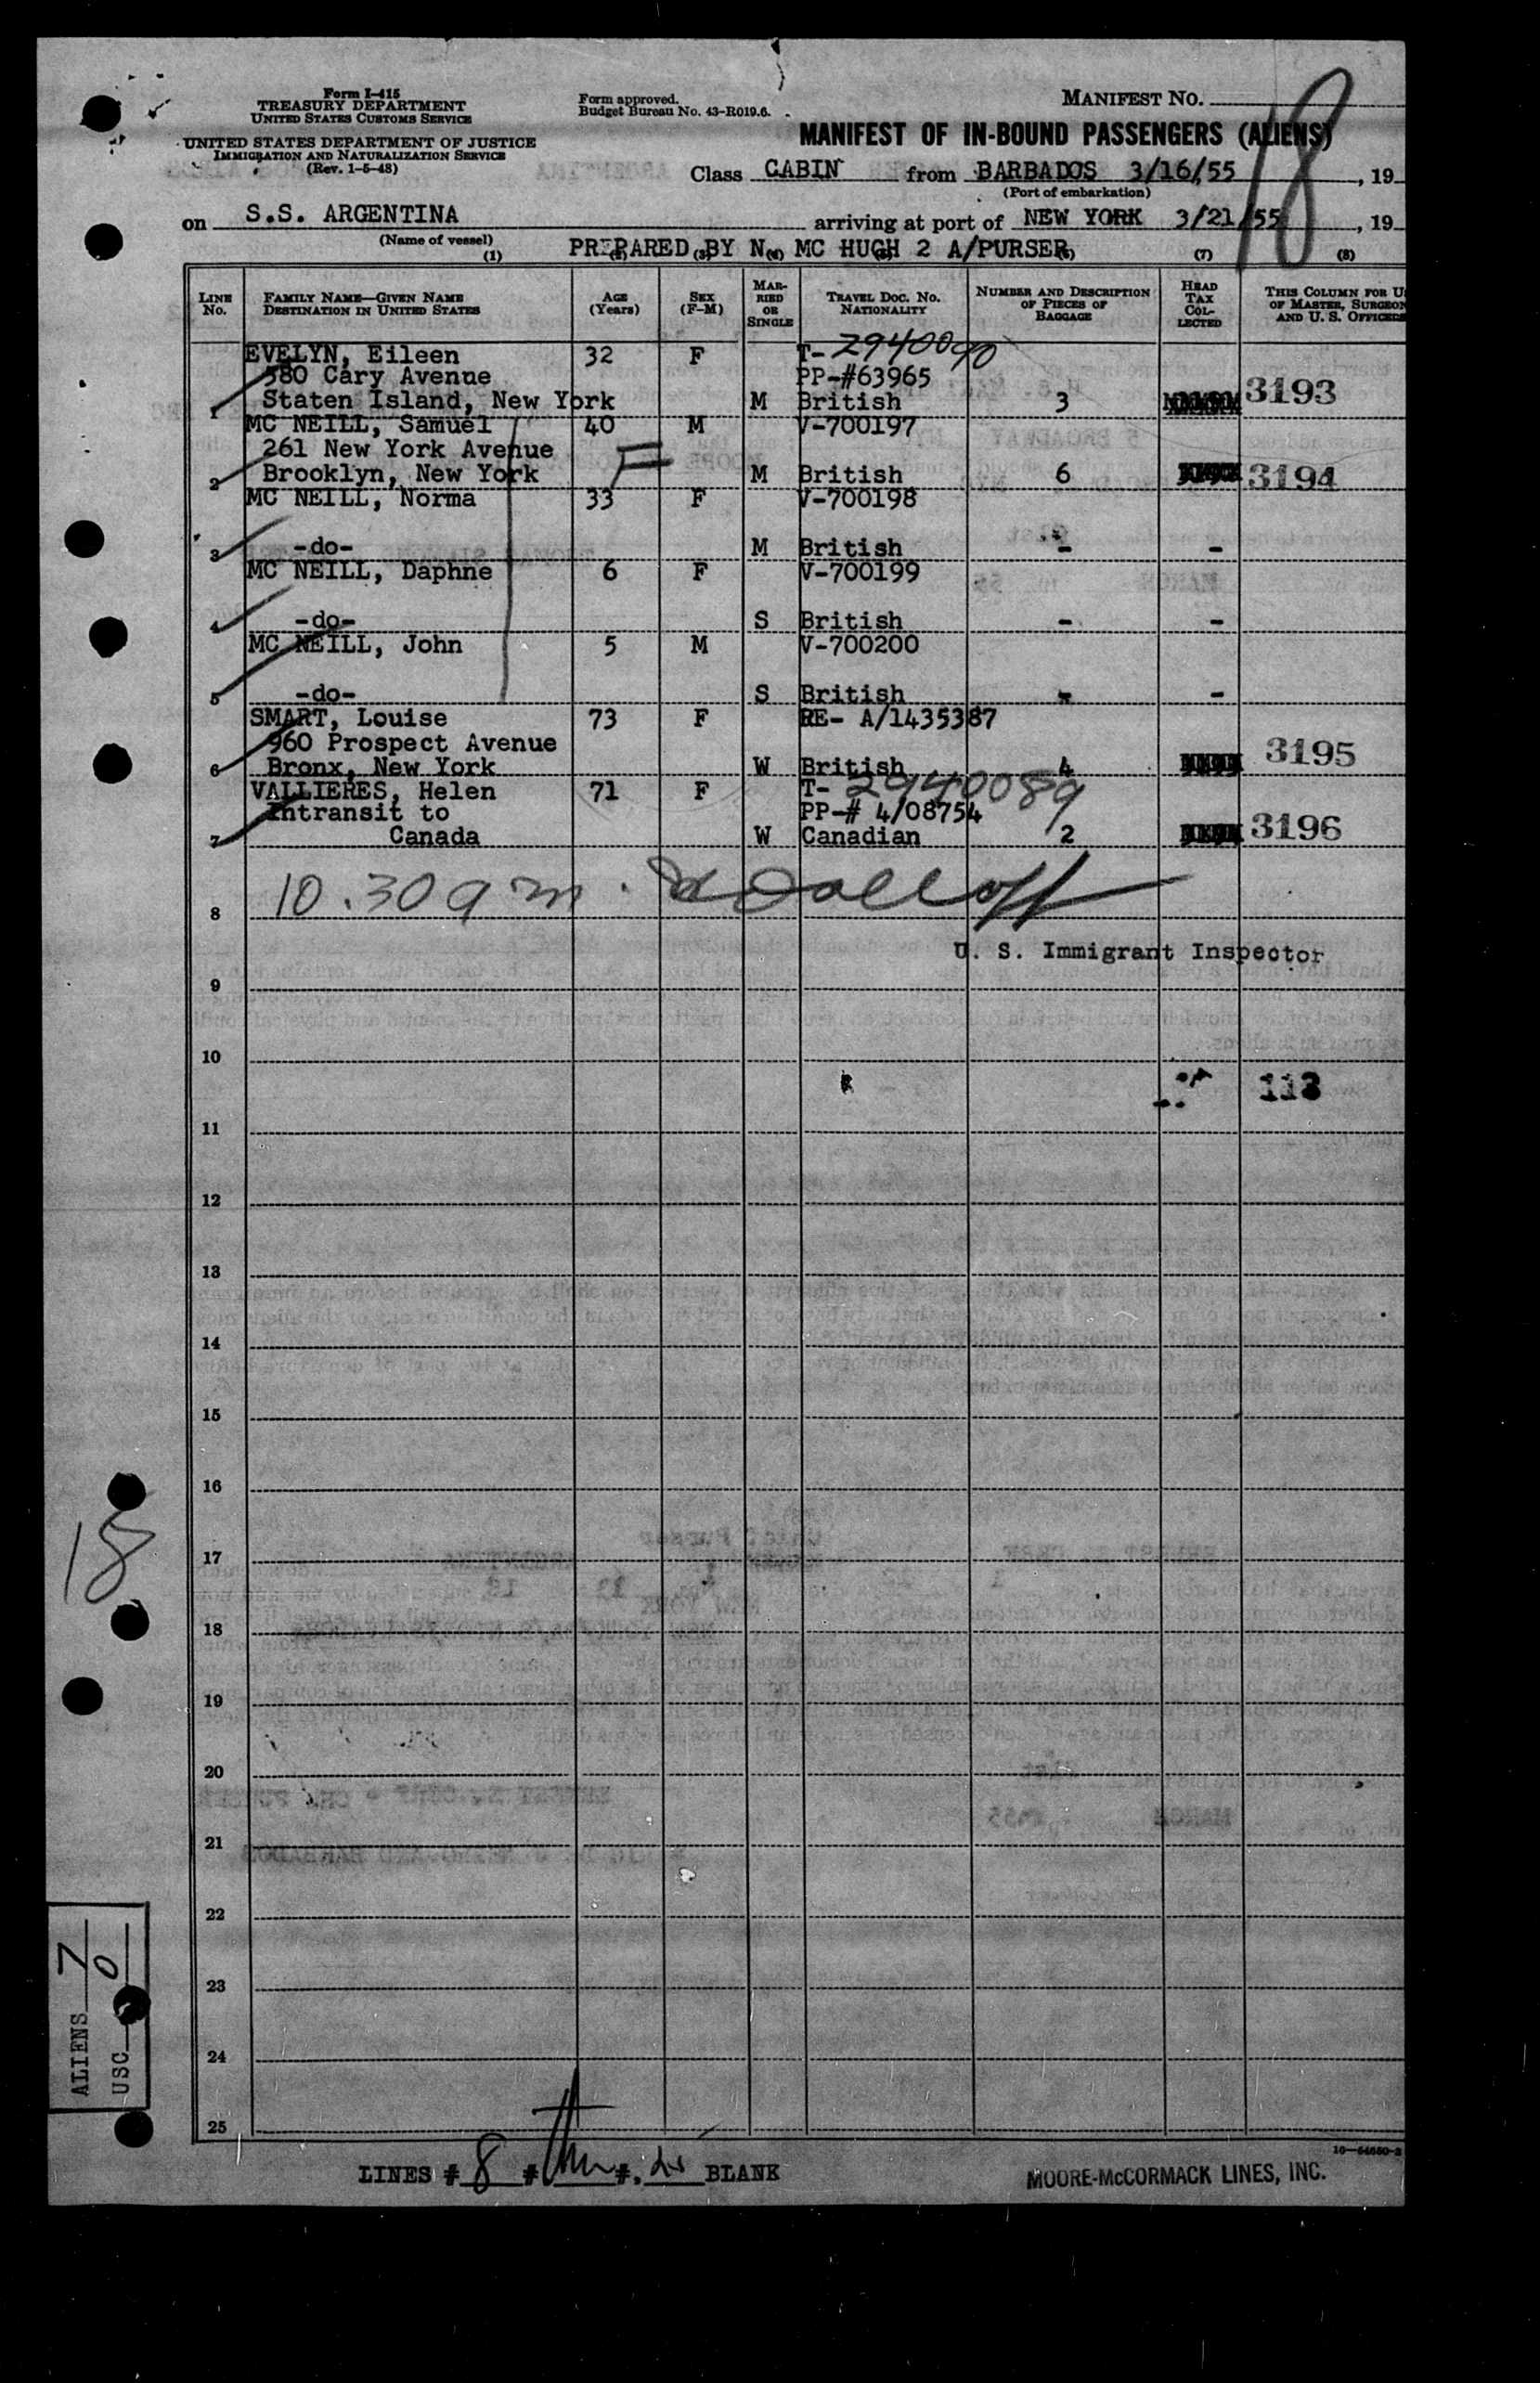 Form I-415
TREASURY DEPARTMENT
UNITED STATES CUSTOMS SERVICE
UNITED STATES DEPARTMENT OF JUSTICE
IMMIGRATION AND NATURALIZATION SERVICE
(Rev. 1-5-48)
Form approved.
Budget Bureau No. 43-R019.6.
MANIFEST NO.
18
MANIFEST OF IN-BOUND PASSENGERS (ALIENS)
Class CABIN from BARBADOS 3/16/55, 19
(Port of embarkation)
on S.S. ARGENTINA arriving at port of NEW YORK 3/21/55, 19
(Name of vessel)
PREPARED BY N. MC HUGH 2 A/PURSER
(1) (2) (3) (4) (5) (6) (7) (8)
LINE No.
FAMILY NAME—GIVEN NAME
DESTINATION IN UNITED STATES
AGE (Years)
SEX (F-M)
MARRIED OR SINGLE
TRAVEL DOC. NO.
NATIONALITY
NUMBER AND DESCRIPTION OF PIECES OF BAGGAGE
HEAD TAX COLLECTED
THIS COLUMN FOR U
OF MASTER, SURGEON
AND U. S. OFFICERS
EVELYN, Eileen 32 F T-2940090
580 Cary Avenue PP-#63965
1 Staten Island, New York M British 3 3193
MC NEILL, Samuel 40 M V-700197
261 New York Avenue F
2 Brooklyn, New York M British 6 3194
MC NEILL, Norma 33 F V-700198
3 -do- M British - -
MC NEILL, Daphne 6 F V-700199
4 -do- S British - -
MC NEILL, John 5 M V-700200
5 -do- S British - -
SMART, Louise 73 F RE- A/1435387
960 Prospect Avenue
6 Bronx, New York W British 4 3195
VALLIERES, Helen 71 F T-2940089
Intransit to PP-# 4/08754
7 Canada W Canadian 2 3196
10.30 a m.
8
U. S. Immigrant Inspector
9
10
113
11
12
13
14
15
16
18
17
18
19
20
21
22
23
24
25
ALIENS 7
USC 0
LINES # 8 # thru #. 25 BLANK
16—54650-2
MOORE-McCORMACK LINES, INC.